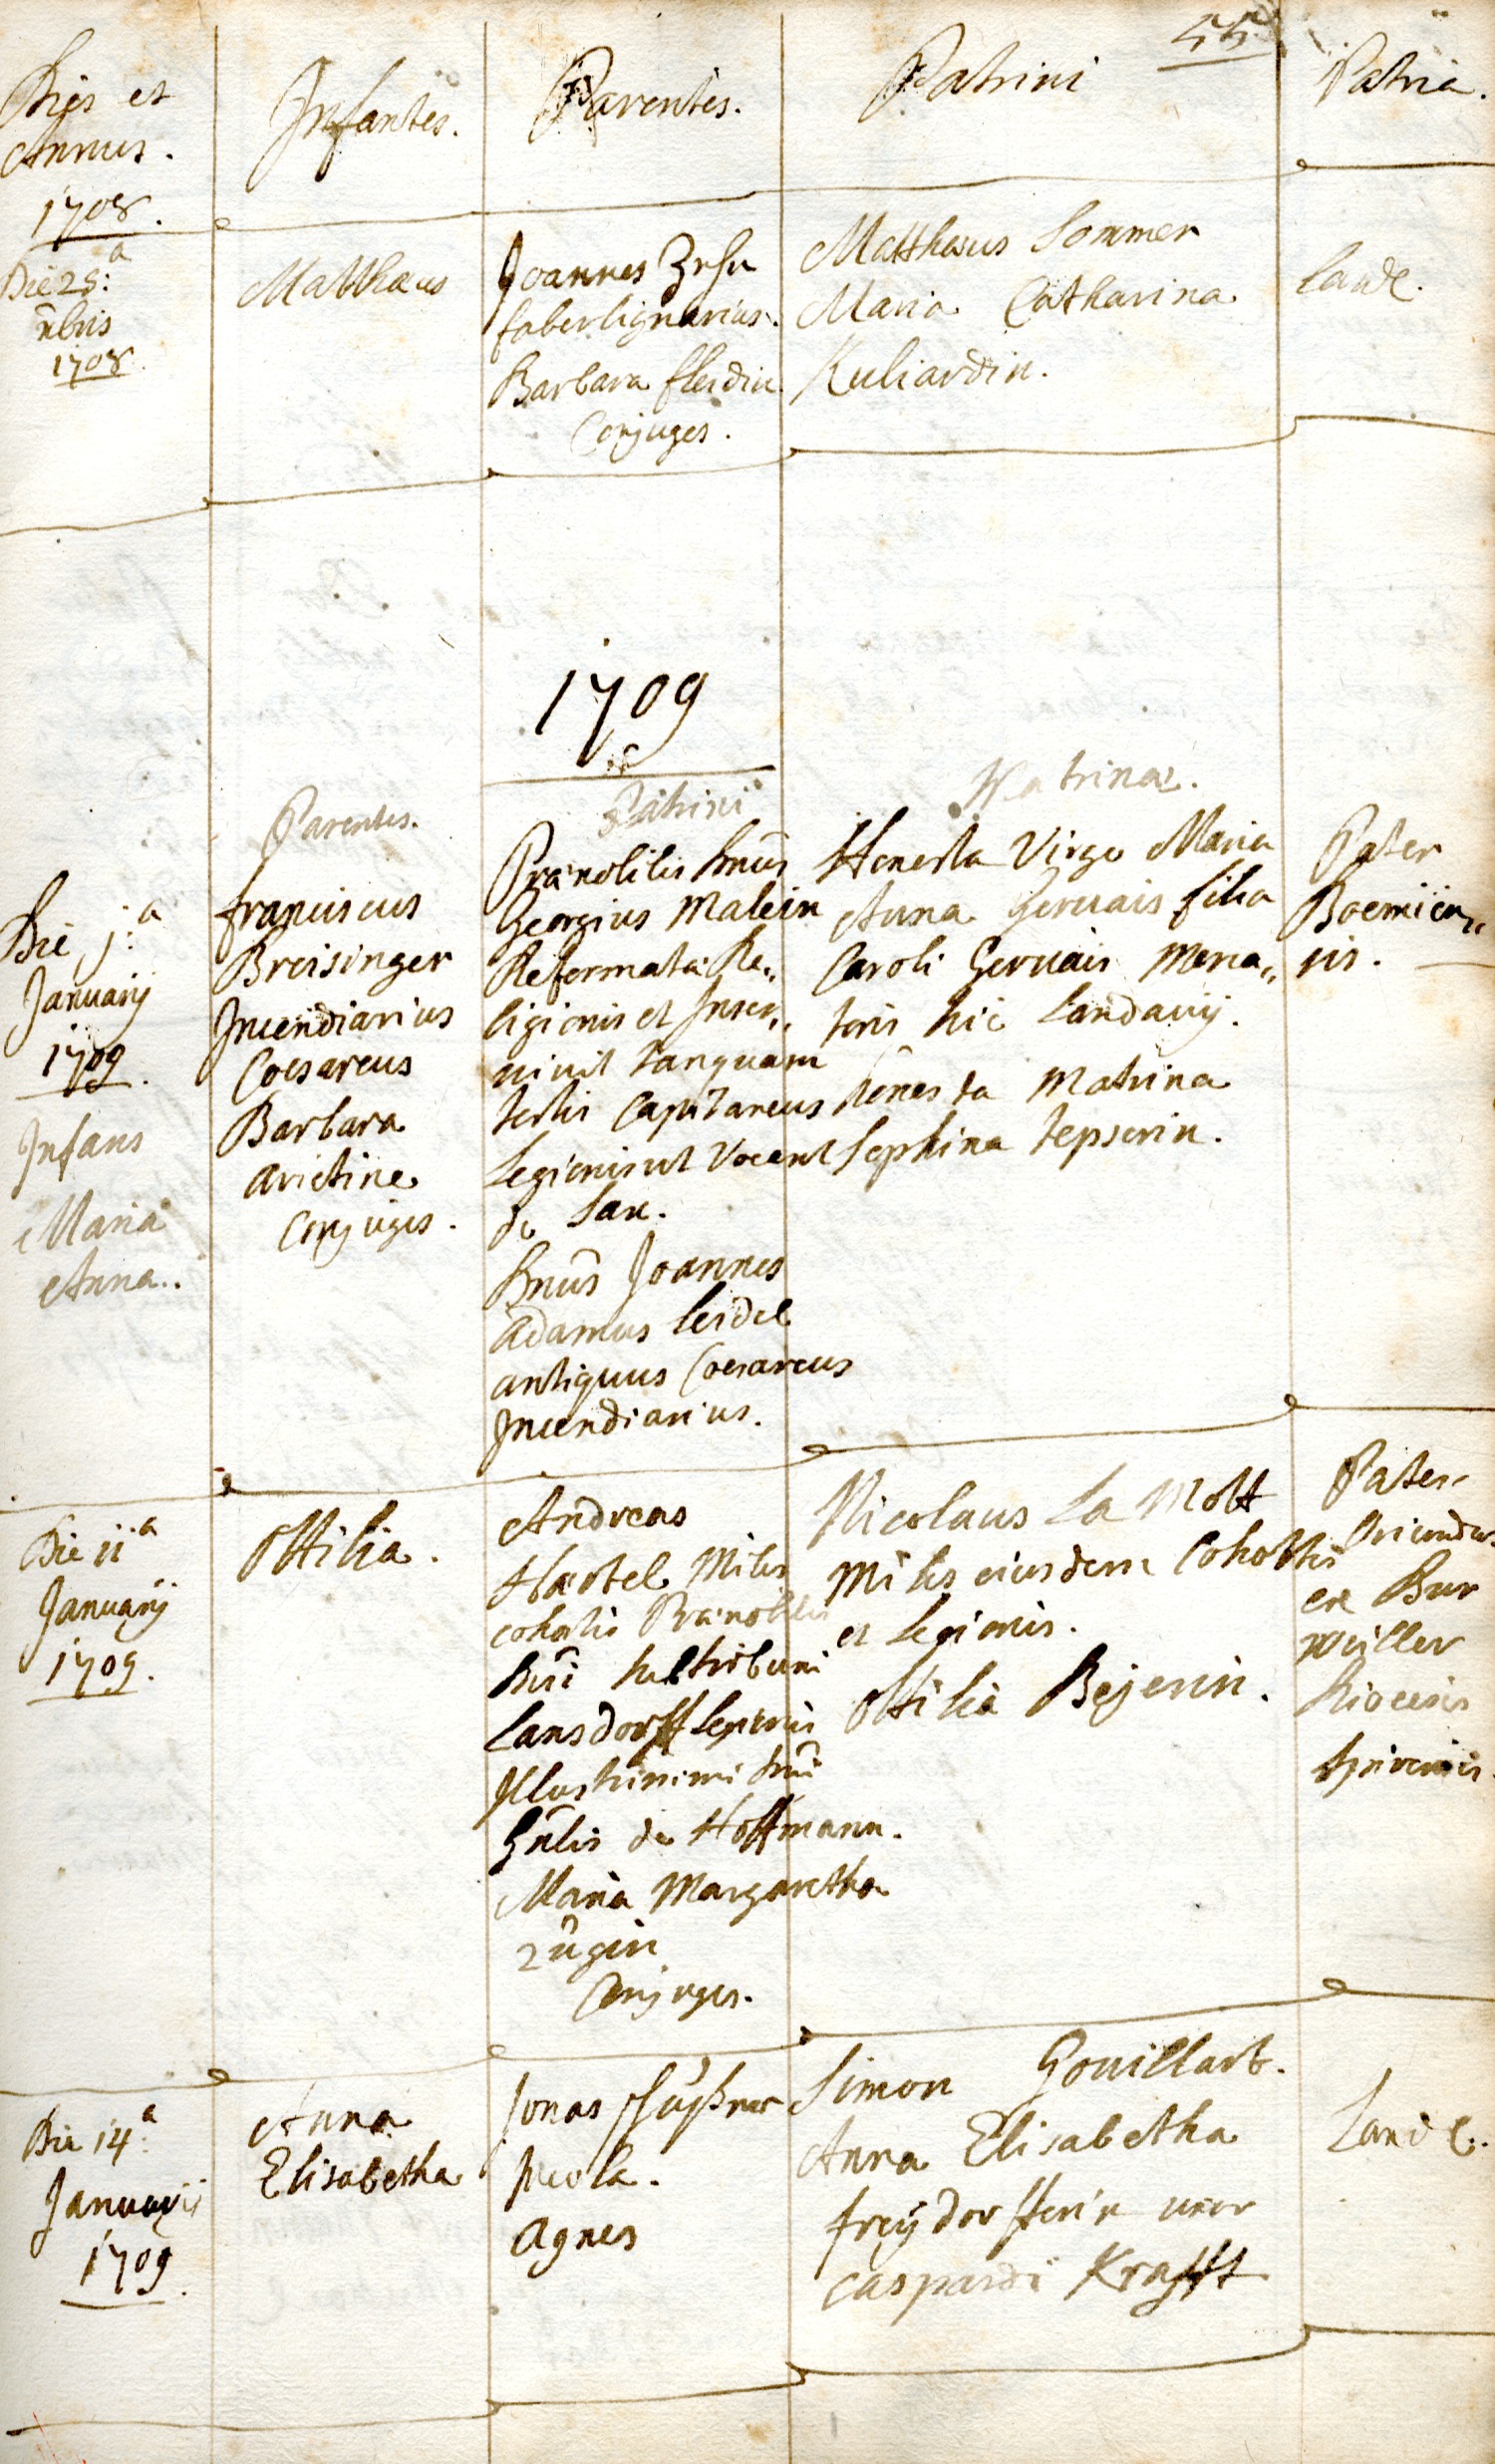 55
Dies et
Annus.
1708.
Infantes.
Parentes.
Patrini
Patria.
Die 25:a
1708
Matthaeus
Joannes
faber lignarius.
Barbara
Conjuges.
Matthaeus Sommer
Maria Catharina
Kuliardin.
Land.
1709
Parentes.
Patrini
Matrinae.
Die j:a
Januarij
1709.
Infans
Maria
Anna..
franciscus
Breisinger
Incendiarius
Coesareus
Barbara
Arietine
Conjuges.
Praenobilis Dnus
Georgius Malein
Reformatae Re„
ligionis et Inser„
vivit tanquam
testis Capitaneus
Legionis ut vocant
de Sax.
Dnus Joannes
Adamus Seidel
antiquus Coesareus
Incendiarius.
Honesta Virgo Maria
Anna Gervais filia
Caroli Gervais merca„
toris hic Landavij.
Honesta Matrina
Sophina Tepserin.
Pater
Boemien„
sis.
Die 11a
Januarij
1709.
Ottilia.
Andreas
Hartel Miles
cohortis Praenobilis
Dni
Lansdorff Legionis
Illustrissimi Dni
Gnlis de Hoffmann.
Maria Margaretha
Zügin
Conjuges.
Nicolaus La Mott
Miles eiusdem Cohortis
et Legionis.
Ottilia Bejerin.
Pater
Oriundus
ex Bur
weiller
Dioecesis
Spirensis.
Die 14:a
Januarij
1709.
Anna
Elisabetha
Jonas
Incola.
Agnes
Simon Gouillart.
Anna Elisabetha
freijdorfferin uxor
Caspardi Krafft
Land.